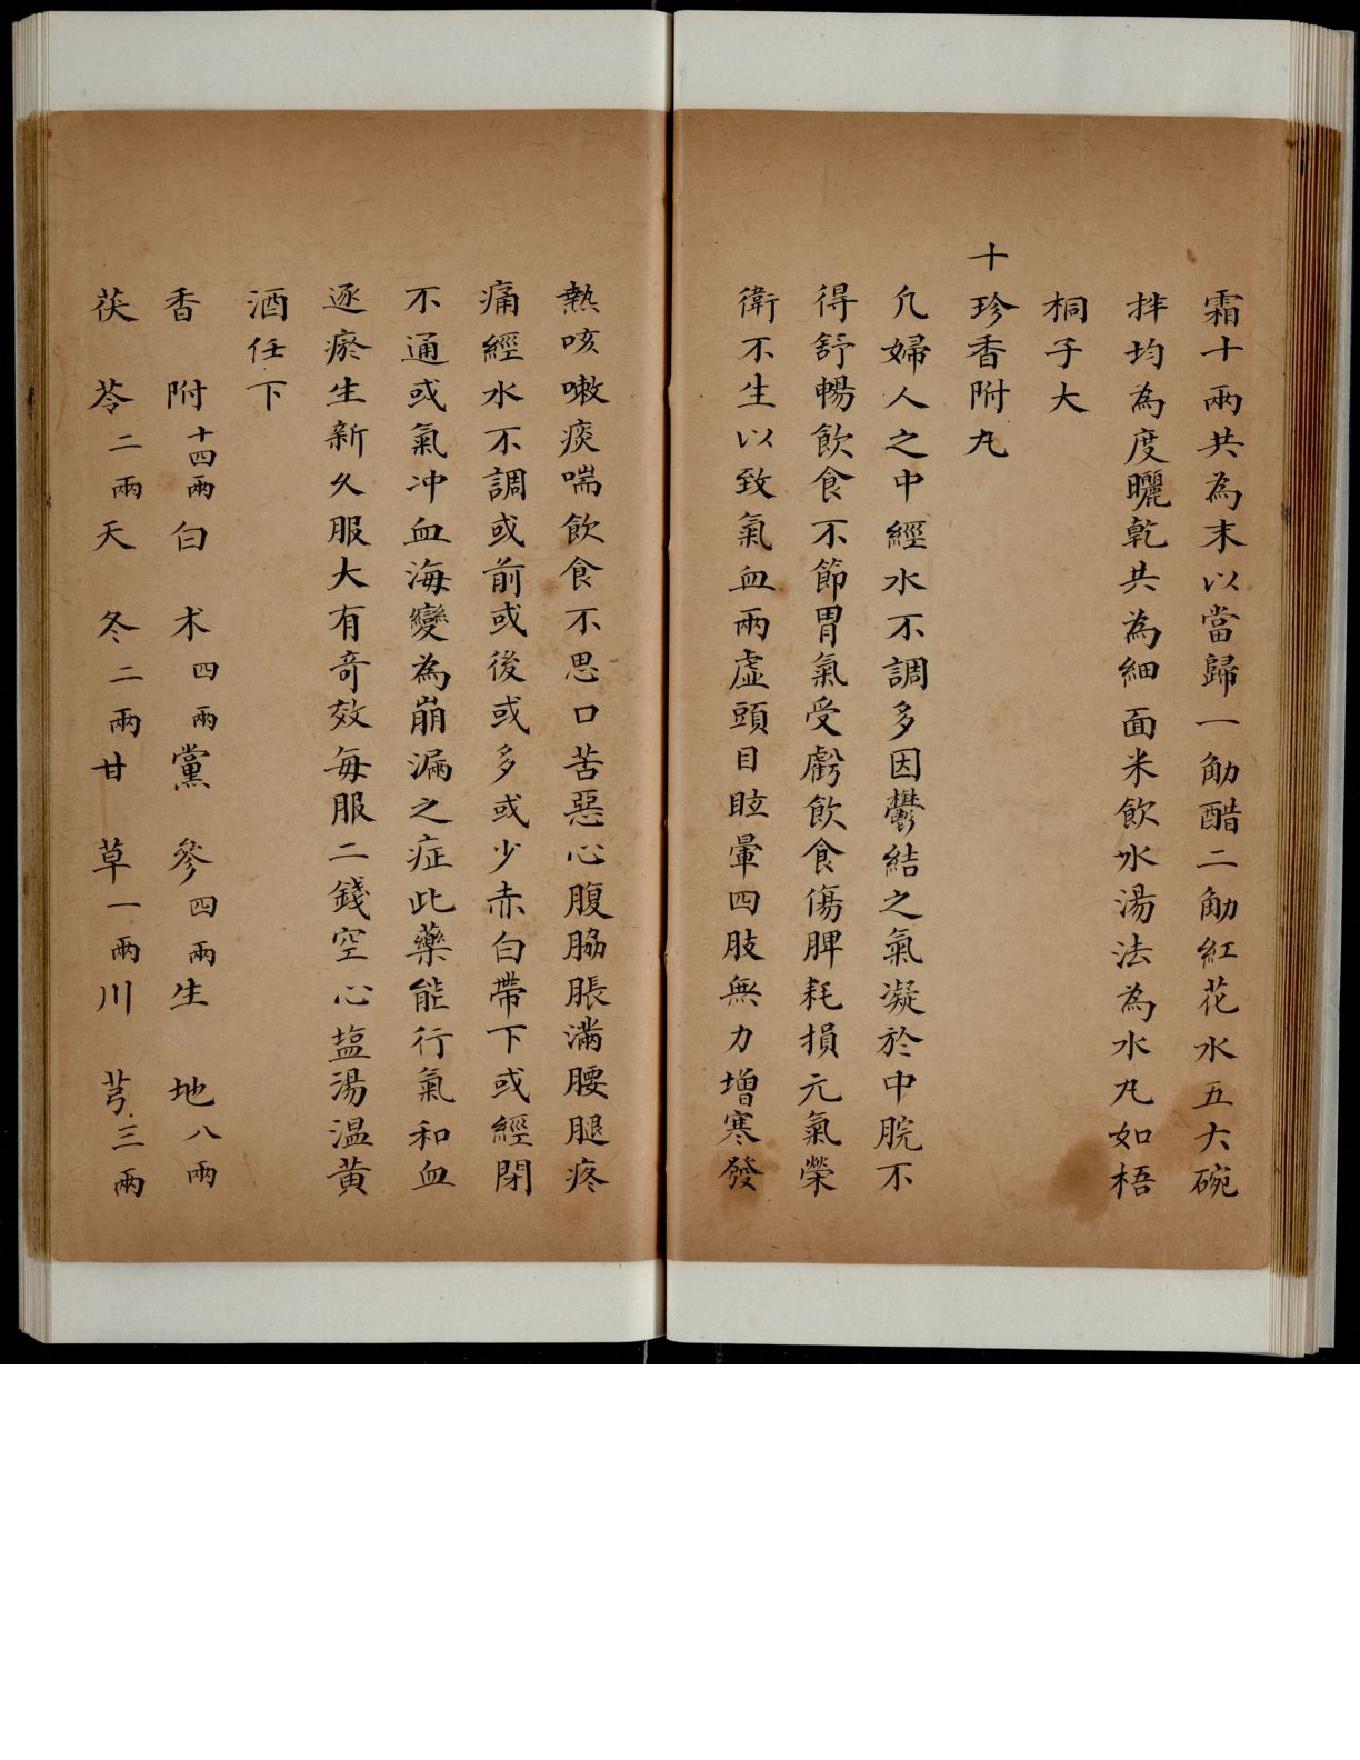 霜十兩共為末以當歸一觔醋二觔紅花水五大碗
拌均為度曬乾共為細面米飲水湯法為水丸如梧
桐子大
十珍香附丸
凡婦人之中經水不調多因鬱結之氣凝於中脘不
得舒暢飲食不節胃氣受虧飲食傷脾耗損元氣榮
衛不生以致氣血兩虛頭目眩暈四肢無力增寒發
熱咳嗽痰喘飲食不思口苦惡心腹脇脹滿腰腿疼
痛經水不調或前或後或多或少赤白帶下或經閉
不通或氣冲血海變為崩漏之症此藥能行氣和血
逐瘀生新久服大有奇效每服二錢空心塩湯温黄
酒任下
香附十四兩白术四兩黨參四兩生地八兩
茯苓二兩天冬二兩甘草一兩川芎三兩